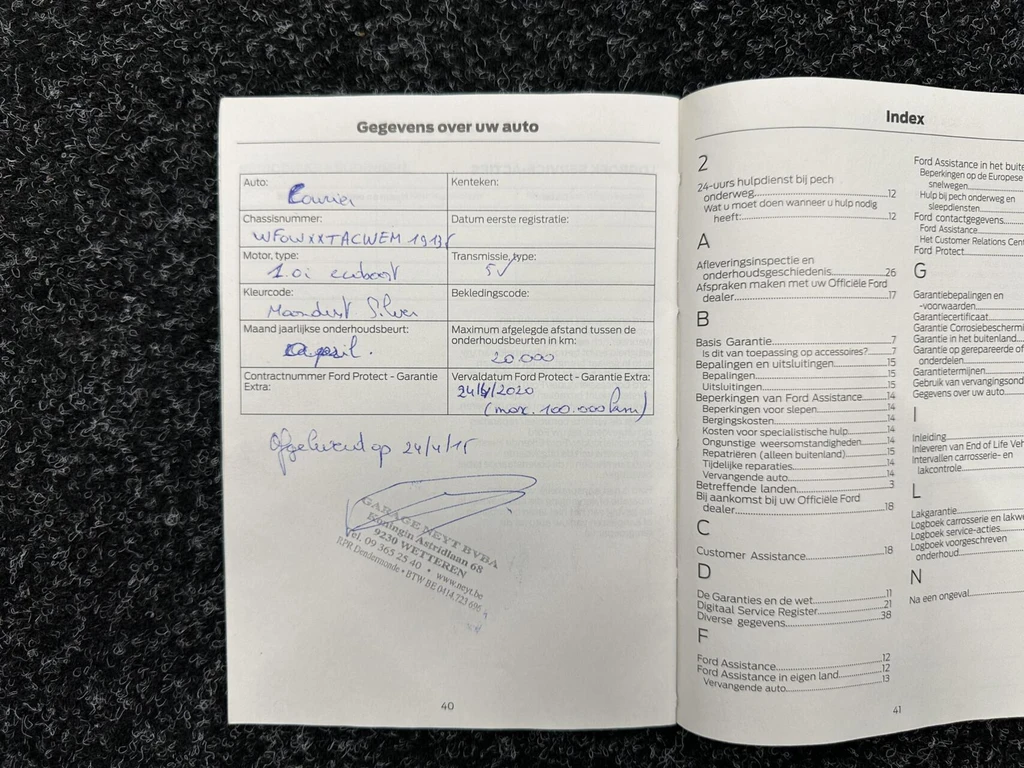 Gegevens over uw auto
Auto:
Courier
Kenteken:
Chassisnummer:
WF0WXXTACWEM 1913
Datum eerste registratie:
Motor, type:
1.0i ecoboost
Transmissie, type:
5V
Kleurcode:
Moondust Silver
Bekledingscode:
Maand jaarlijkse onderhoudsbeurt:
april.
Maximum afgelegde afstand tussen de
onderhoudsbeurten in km:
20.000
Contractnummer Ford Protect - Garantie
Extra:
Vervaldatum Ford Protect - Garantie Extra:
24/4/2020
(max. 100.000km)
Afgeleverd op 24/4/15
GARAGE NEYT BVBA
Koningin Astridlaan 68
9230 WETTEREN
Tel. 09 365 25 40 • www.neyt.be
RPR Dendermonde • BTW BE 0414.723.696
40
Index
2
24-uurs hulpdienst bij pech
onderweg 12
Wat u moet doen wanneer u hulp nodig
heeft: 12
A
Afleveringsinspectie en
onderhoudsgeschiedenis 26
Afspraken maken met uw Officiële Ford
dealer 17
B
Basis Garantie 7
Is dit van toepassing op accessoires? 7
Bepalingen en uitsluitingen 15
Bepalingen 15
Uitsluitingen 15
Beperkingen van Ford Assistance 14
Beperkingen voor slepen 14
Bergingskosten 14
Kosten voor specialistische hulp 14
Ongunstige weersomstandigheden 14
Repatriëren (alleen buitenland) 15
Tijdelijke reparaties 14
Vervangende auto 14
Betreffende landen 3
Bij aankomst bij uw Officiële Ford
dealer 18
C
Customer Assistance 18
D
De Garanties en de wet 11
Digitaal Service Register 21
Diverse gegevens 38
F
Ford Assistance 12
Ford Assistance in eigen land 12
Vervangende auto 13
Ford Assistance in het buite
Beperkingen op de Europese
snelwegen
Hulp bij pech onderweg en
sleepdiensten
Ford contactgegevens
Ford Assistance
Het Customer Relations Cent
Ford Protect
G
Garantiebepalingen en
-voorwaarden
Garantiecertificaat
Garantie Corrosiebeschermi
Garantie in het buitenland
Garantie op gerepareerde of
onderdelen
Garantietermijnen
Gebruik van vervangingsond
Gegevens over uw auto
I
Inleiding
Inleveren van End of Life Veh
Intervallen carrosserie- en
lakcontrole
L
Lakgarantie
Logboek carrosserie en lakwe
Logboek service-acties
Logboek voorgeschreven
onderhoud
N
Na een ongeval
41